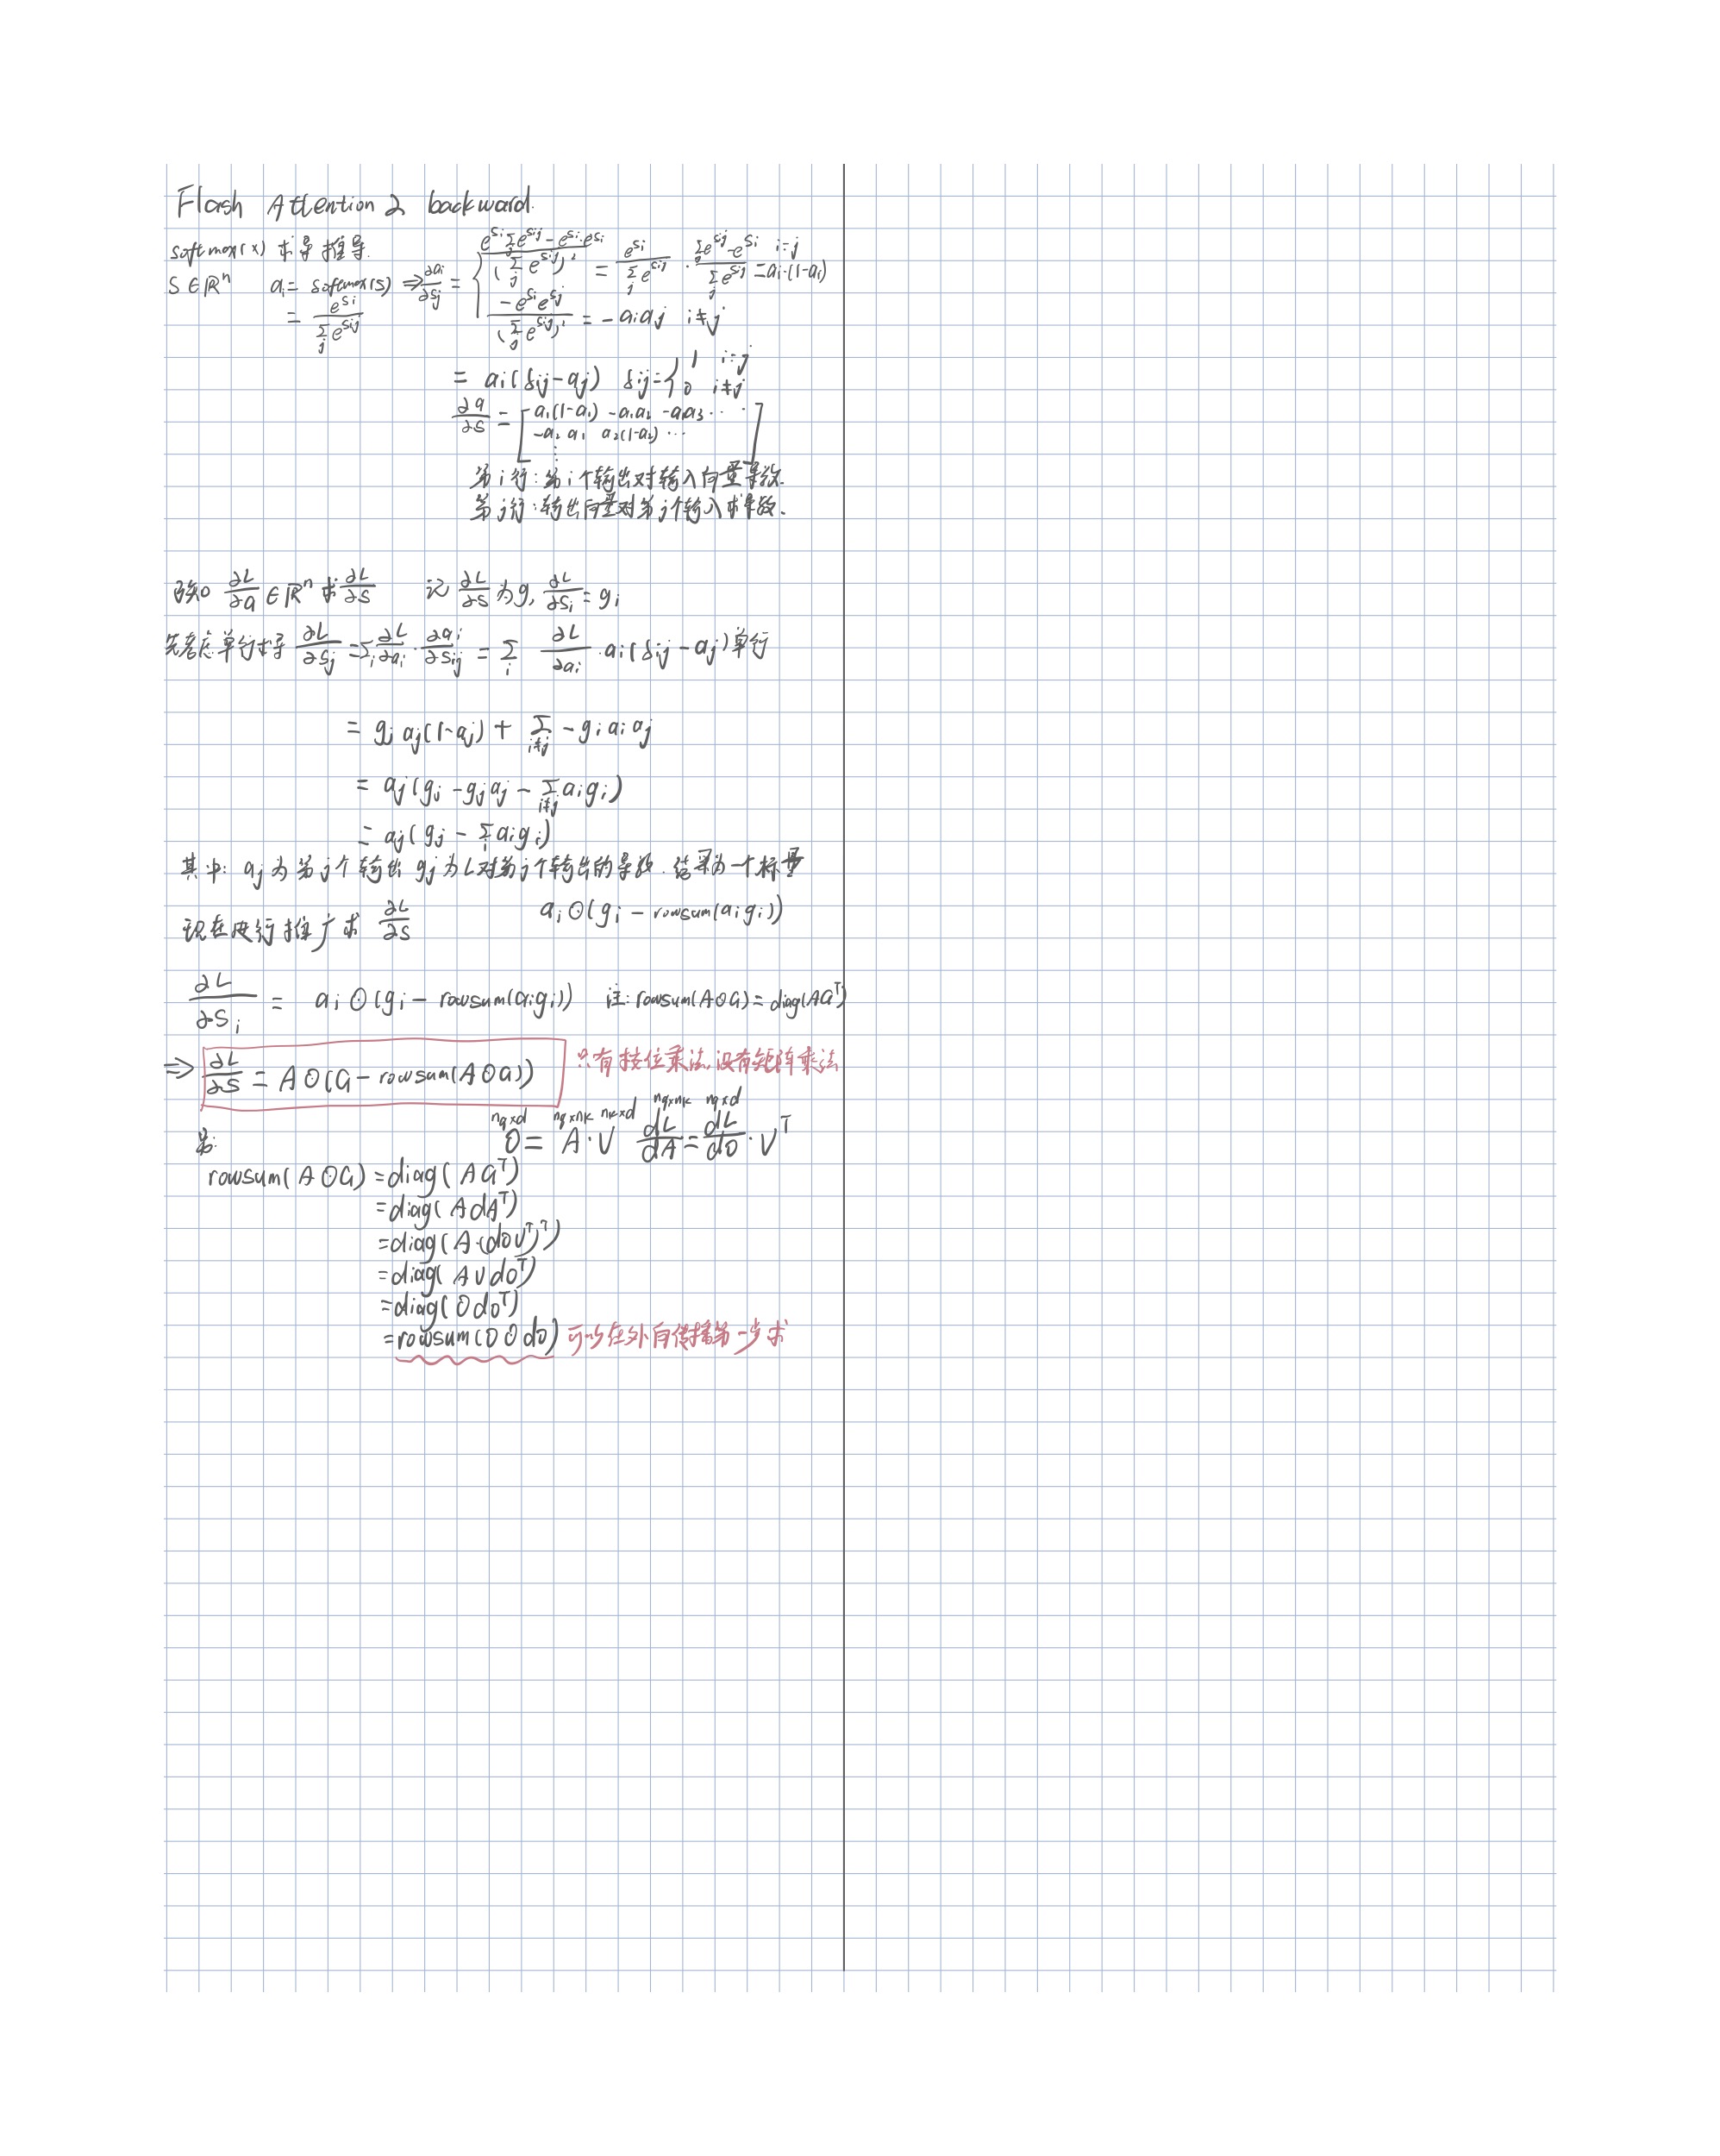 Flash Attention 2 backward.
softmax(x) 求导推导.
S∈ℝⁿ aᵢ = softmax(s) ⇒ ∂aᵢ/∂sⱼ = { (e^{sᵢ} Σⱼ e^{sᵢⱼ} - e^{sᵢ}·e^{sᵢ})/(Σⱼ e^{sᵢⱼ})² = e^{sᵢ}/Σⱼ e^{sᵢⱼ} · (Σⱼ e^{sᵢⱼ} - e^{sᵢ})/Σⱼ e^{sᵢⱼ} = aᵢ·(1-aᵢ) i=j
= e^{sᵢ}/Σⱼ e^{sᵢⱼ} -e^{sᵢ}e^{sⱼ}/(Σⱼ e^{sᵢⱼ})² = -aᵢaⱼ i≠j
= aᵢ(δᵢⱼ-aⱼ) δᵢⱼ = { 1 i=j 0 i≠j
∂a/∂s = [ a₁(1-a₁) -a₁a₂ -a₁a₃ ···
-a₂a₁ a₂(1-a₂) ···
⋮ ]
第i行: 第i个输出对输入向量导数.
第j行: 输出向量对第j个输入求导数.
已知 ∂L/∂a ∈ ℝⁿ 求 ∂L/∂s 记 ∂L/∂s 为g, ∂L/∂sᵢ = gᵢ
先考虑单行求导 ∂L/∂sⱼ = Σᵢ ∂L/∂aᵢ · ∂aᵢ/∂sᵢⱼ = Σᵢ ∂L/∂aᵢ · aᵢ(δᵢⱼ-aⱼ) 单行
= gⱼ aⱼ(1-aⱼ) + Σ_{i≠j} -gᵢaᵢaⱼ
= aⱼ(gⱼ - gⱼaⱼ - Σ_{i≠j} aᵢgᵢ)
= aⱼ(gⱼ - Σᵢ aᵢgᵢ)
其中: aⱼ为第j个输出 gⱼ为L对第j个输出的导数. 结果为一个标量
现在进行推广求 ∂L/∂s aᵢ⊙(gᵢ - rowsum(aᵢgᵢ))
∂L/∂Sᵢ = aᵢ⊙(gᵢ - rowsum(aᵢgᵢ)) 注: rowsum(A⊙G) = diag(AGᵀ)
⇒ ∂L/∂S = A⊙(G - rowsum(A⊙G)) 只有按位乘法, 没有矩阵乘法
nq×d nq×nk nk×d nq×nk nq×d
O = A·V dL/dA = dL/dO · Vᵀ
rowsum(A⊙G) = diag(AGᵀ)
= diag(AdAᵀ)
= diag(A·(dOVᵀ)ᵀ)
= diag(AVdOᵀ)
= diag(OdOᵀ)
= rowsum(O⊙dO) 可以在外向传播第一步求